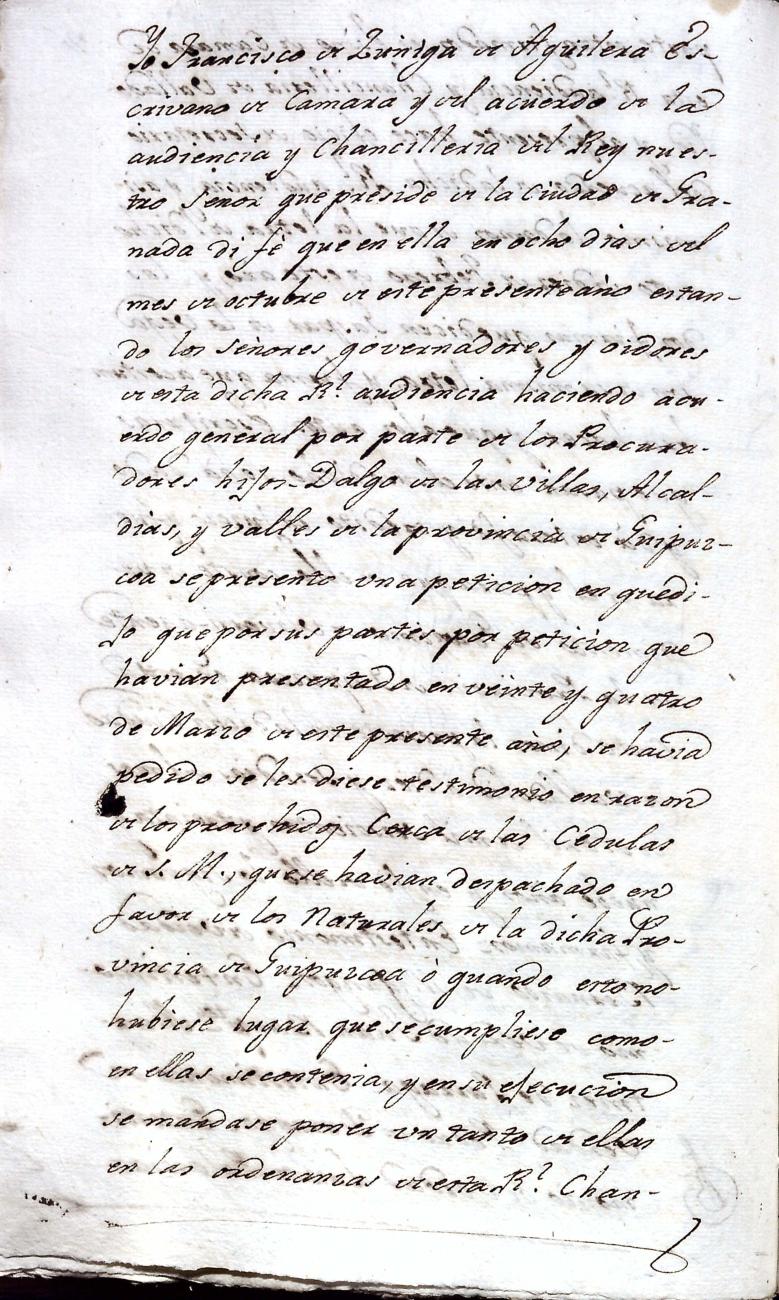 Yo Francisco de Zuñiga de Aguilera Es-
crivano de Camara y del acuerdo de la
audiencia y Chancilleria del Rey nues-
tro Señor que preside de la Ciudad de Gra-
nada di fè que en ella en ocho dias del
mes de octubre de este presente año estan-
do los señores governadores y oidores
de esta dicha Rl. audiencia haciendo acu-
erdo general por parte de los Procura-
dores hijos-Dalgo de las Villas, Alcal-
dias, y valles de la provincia de Guipuz-
coa se presento una peticion en que di-
jo que por sus partes por peticion que
havian presentado en veinte y quatro
de Marzo de este presente año, se havia
pedido se les diese testimonio en razon
de los provehidos Cerca de las Cedulas
de S. M., que se havian despachado en
favor de los Naturales de la dicha Pro-
vincia de Guipuzcoa ò quando esto no-
hubiese lugar que se cumpliese como-
en ellas se contenia, y en su ejecucion
se mandase poner un tanto de ellas
en las ordenanzas de esta Rl. Chan-